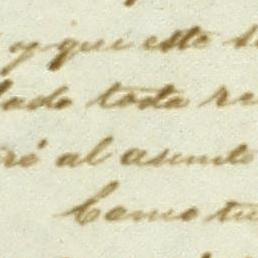 y que este
toda re
ré al asunto
Como tu